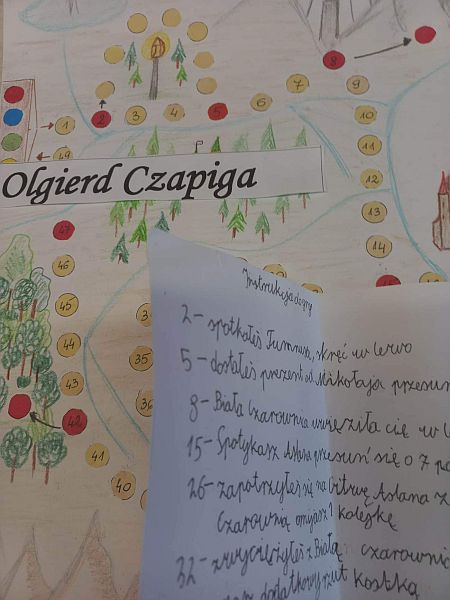 8
7
9
6
5
4
3
2
1
10
11
12
13
14
49
Olgierd Czapiga
47
46
45
44
43
42
41
40
35
36
Instrukcja do gry
2 - spotkałeś Tumnusa, skręć w lewo
5 - dostałeś prezent od Mikołaja przesuń
8 - Biała Czarownica uwięziła cię w
15 - Spotykasz Aslana przesuń się o 7 po
26 - zapatrzyłeś się na bitwę Aslana z
Czarownicą omijasz 1 kolejkę
32 - zwyciężyłeś z Białą czarowni
dodatkowy rzut kostką